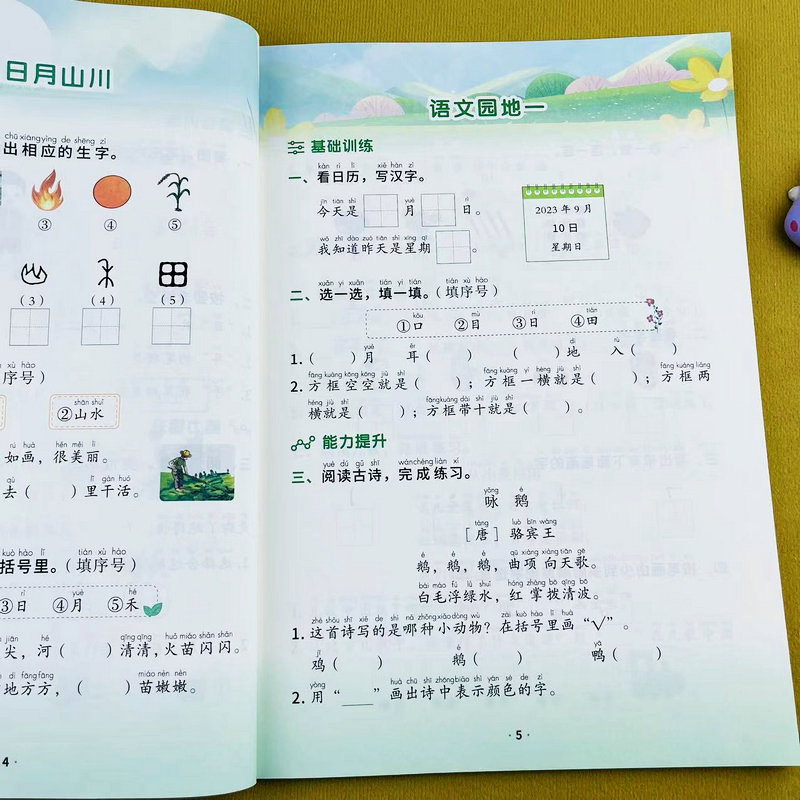 日月山川
chū xiāng yìng de shēng zì
出相应的生字。
③ ④ ⑤
(3) (4) (5)
田
xù hào
序号)
shān shuǐ
②山水
rú huà hěn měi lì
如画，很美丽。
qù lǐ gàn huó
去( )里干活。
kuò hào lǐ tián xù hào
括号里。(填序号)
③日 ④月 ⑤禾
jiān qīng qīng huǒ miáo shǎn shǎn
尖，河( )清清，火苗闪闪。
dì fāng fāng miáo nèn nèn
地方方，( )苗嫩嫩。
4
语文园地一
基础训练
kàn rì lì xiě hàn zì
一、看日历，写汉字。
jīn tiān shì yuè rì
今天是 月 日。
wǒ zhī dào zuó tiān shì xīng qī
我知道昨天是星期 。
2023年9月
10日
星期日
xuǎn yi xuǎn tián yi tián tián xù hào
二、选一选，填一填。(填序号)
kǒu mù rì tián
①口 ②目 ③日 ④田
yuè ěr dì rù
1. ( )月 耳( ) ( )地 入( )
fāng kuàng kōng kōng jiù shì fāng kuàng yì héng jiù shì fāng kuàng liǎng
2. 方框空空就是( )；方框一横就是( )；方框两
héng jiù shì fāng kuàng dài shí jiù shì
横就是( )；方框带十就是( )。
能力提升
yuè dú gǔ shī wán chéng liàn xí
三、阅读古诗，完成练习。
yǒng é
咏鹅
táng luò bīn wáng
[唐] 骆宾王
é é é qū xiàng xiàng tiān gē
鹅，鹅，鹅，曲项向天歌。
bái máo fú lǜ shuǐ hóng zhǎng bō qīng bō
白毛浮绿水，红掌拨清波。
zhè shǒu shī xiě de shì nǎ zhǒng xiǎo dòng wù zài kuò hào lǐ huà
1. 这首诗写的是哪种小动物？在括号里画“√”。
jī é yā
鸡( ) 鹅( ) 鸭( )
yòng huà chū shī zhōng biǎo shì yán sè de zì
2. 用“___”画出诗中表示颜色的字。
·5·